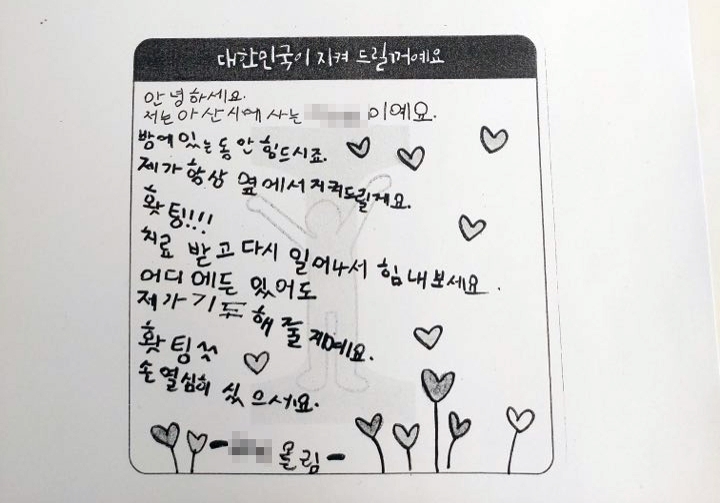 대한민국이 지켜 드릴꺼예요
안녕하세요.
저는 아산시에 사는 이예요.
방에 있는 동안 힘드시죠.
제가 항상 옆에서 지켜드릴게요.
홧팅!!!
치료 받고 다시 일어나서 힘내보세요.
어디에든 있어도
제가 기도해 줄게예요.
홧팅
손 열심히 씻으세요.
- 올림 -